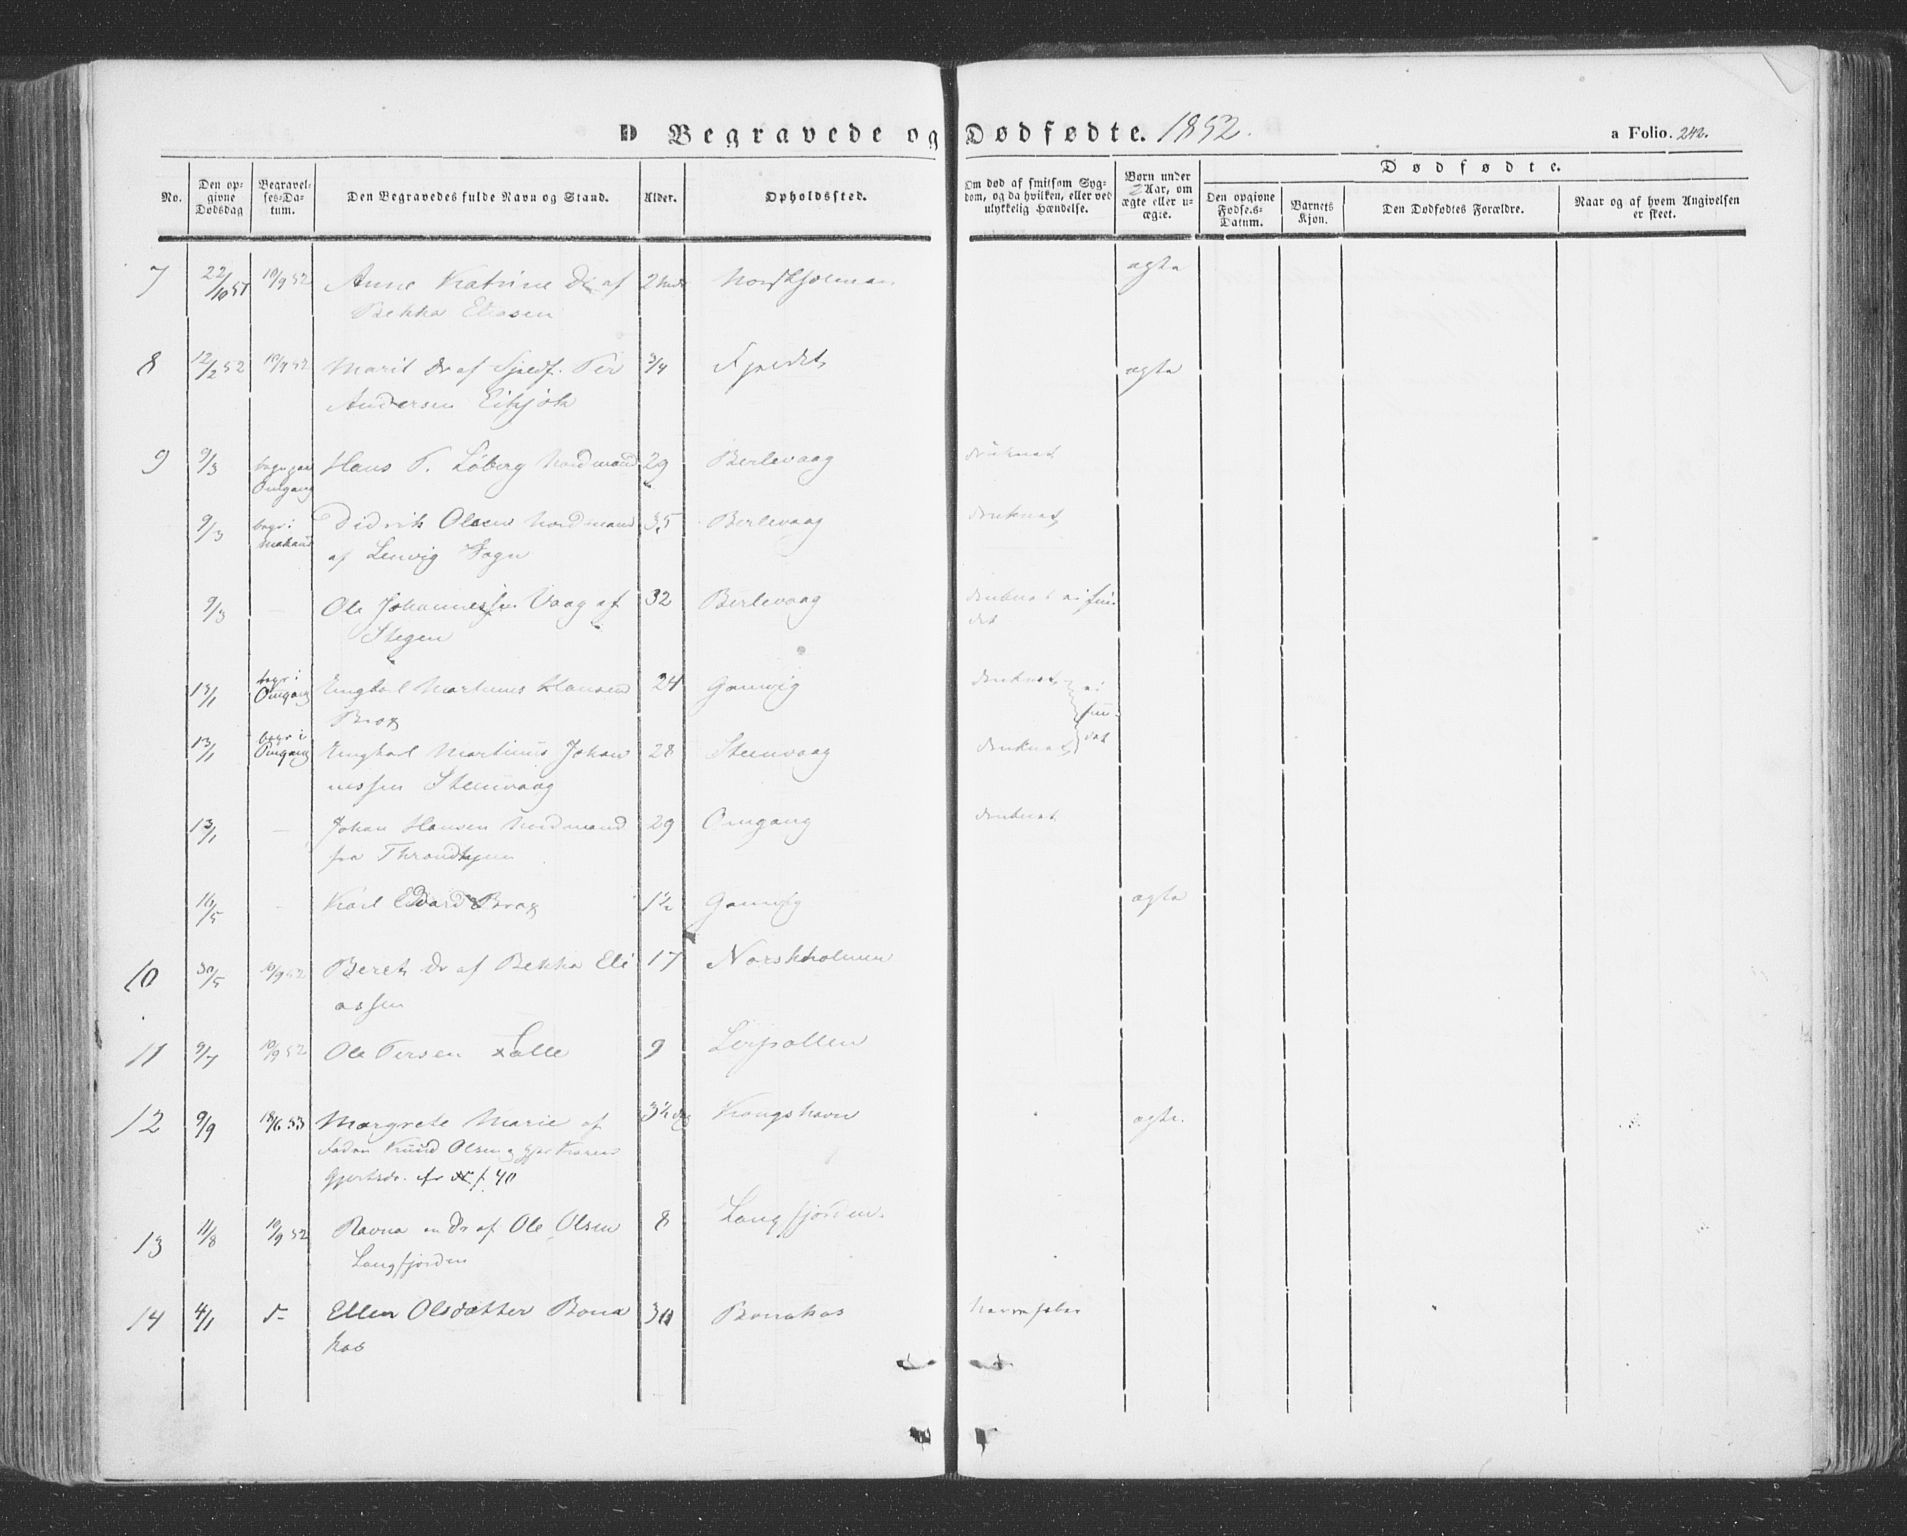 D Begravede og Dødfødte. 1852.
a Folio. 242.
No.
Den opgivne Dødsdag
Begravelses-Datum.
Den Begravedes fulde Navn og Stand.
Alder.
Opholdssted.
Om død af smitsom Sygdom, og da hvilken, eller ved ulykkelig Hændelse.
Børn under 2 Aar, om ægte eller uægte.
Dødfødte.
Den opgivne Fødsels-Datum.
Barnets Kjøn.
Den Dødfødtes Forældre.
Naar og af hvem Angivelsen er skeet.
7 22/10 51 10/9 52 Anne Katrine Dr af ægte
Bekka Eliasen
8 12/2 52 10/9 52 Marit Dr af Per 3/4 ægte
Andersen
9 9/3 Hans P. Löberg Nordmand 29 Berlevaag druknet
Omgang
9/3 begr i Didrik Olsen Nordmand 35 Berlevaag druknet
af Lenvig Sogn
9/3 — Ole Johannessen Vaag af 32 Berlevaag druknet ei fun-
Stegen det
13/1 begr i Omgang Martinus Hansen 24 Gamvig druknet ei
Brox fun-
13/1 begr i Omgang Martinus Johan 28 Steenvaag druknet det
nessen Steenvaag
13/1 — Johan Hansen Nordmand 29 Omgang druknet
fra Throndhjem
16/5 — Karl Edvard Brox 1½ Gamvig ægte
10 30/5 10/9 52 Beret Dr af Bekka Eli 17 Norskholmen
assen
11 9/7 10/9 52 Ole Persen Lalle 9 Leirpollen
12 9/9 18/6 53 Margrete Marie af 3½ Kongshavn ægte.
Knud Olsen
Gjertsdr. f. 40
13 11/8 10/9 52 Ravna en Dr af Ole Olsen 8 Langfjorden
Langfjorden
14 4/1 Ellen Olsdatter Bona 30 Bonakas
kas